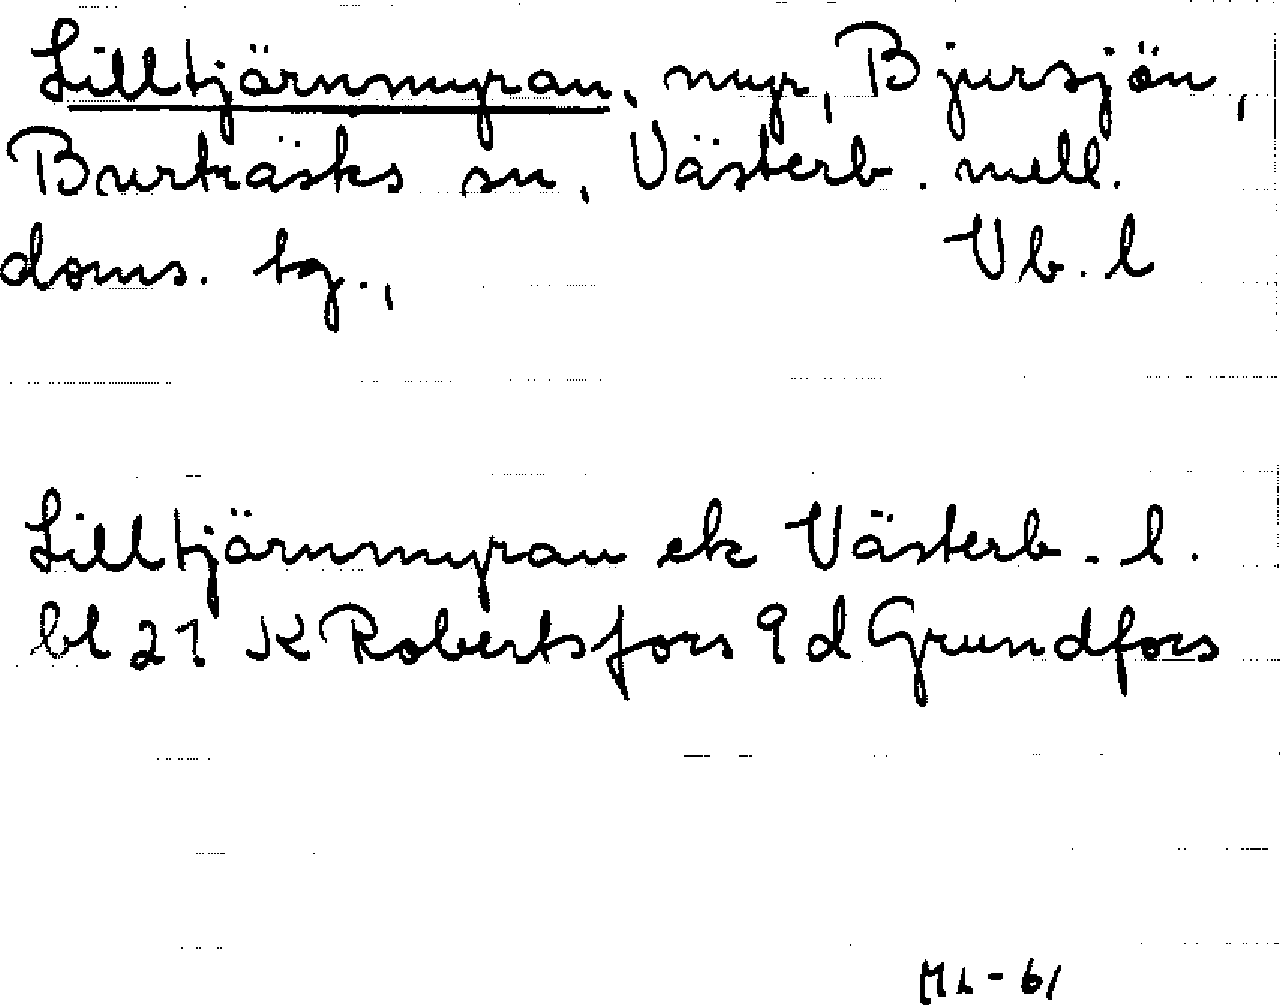 Lilltjärnmyran, myr, Bjursjön,
Burträsks sn, Västerb. mell.
doms. tg., Vb. l
Lilltjärnmyran ek Västerb. l.
bl 21 K Robertsfors 9d Grundfors
ML-61